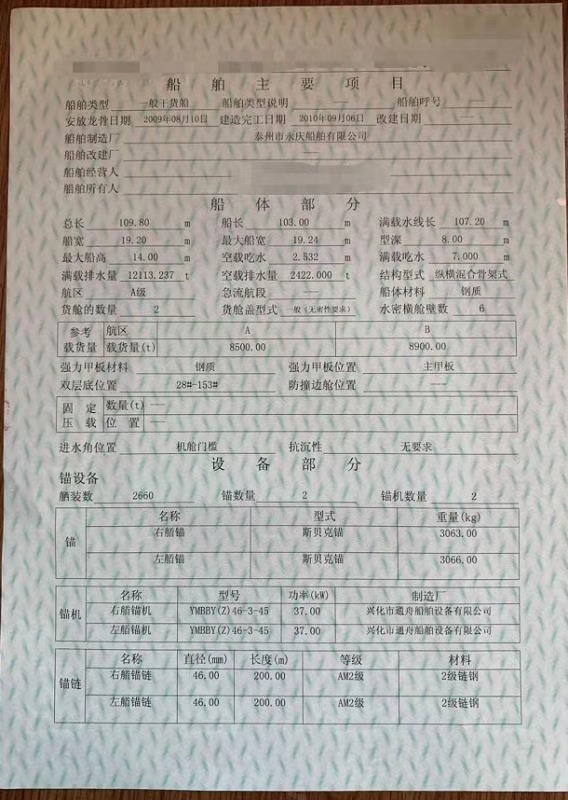 船舶主要项目
船舶类型 一般干货船 船舶类型说明 —— 船舶呼号 ——
安放龙骨日期 2009年08月10日 建造完工日期 2010年09月06日 改建日期 ——
船舶制造厂 泰州市永庆船舶有限公司
船舶改建厂 ——
船舶经营人
船舶所有人
船体部分
总长 109.80 m 船长 103.00 m 满载水线长 107.20 m
船宽 19.20 m 最大船宽 19.24 m 型深 8.00 m
最大船高 14.00 m 空载吃水 2.532 m 满载吃水 7.000 m
满载排水量 12113.237 t 空载排水量 2422.000 t 结构型式 纵横混合骨架式
航区 A级 急流航段 —— 船体材料 钢质
货舱的数量 2 货舱盖型式 一般（无密性要求） 水密横舱壁数 6
参考 航区 A B
载货量 载货量(t) 8500.00 8900.00
强力甲板材料 钢质 强力甲板位置 主甲板
双层底位置 28#-153# 防撞边舱位置 ——
固定 数量(t) ——
压载 位置 ——
进水角位置 机舱门槛 抗沉性 无要求
设备部分
锚设备
舾装数 2660 锚数量 2 锚机数量 2
锚 名称 型式 重量(kg)
右船锚 斯贝克锚 3063.00
左船锚 斯贝克锚 3066.00
锚机 名称 型号 功率(kW) 制造厂
右船锚机 YMBBY(Z)46-3-45 37.00 兴化市通舟船舶设备有限公司
左船锚机 YMBBY(Z)46-3-45 37.00 兴化市通舟船舶设备有限公司
锚链 名称 直径(mm) 长度(m) 等级 材料
右船锚链 46.00 200.00 AM2级 2级链钢
左船锚链 46.00 200.00 AM2级 2级链钢